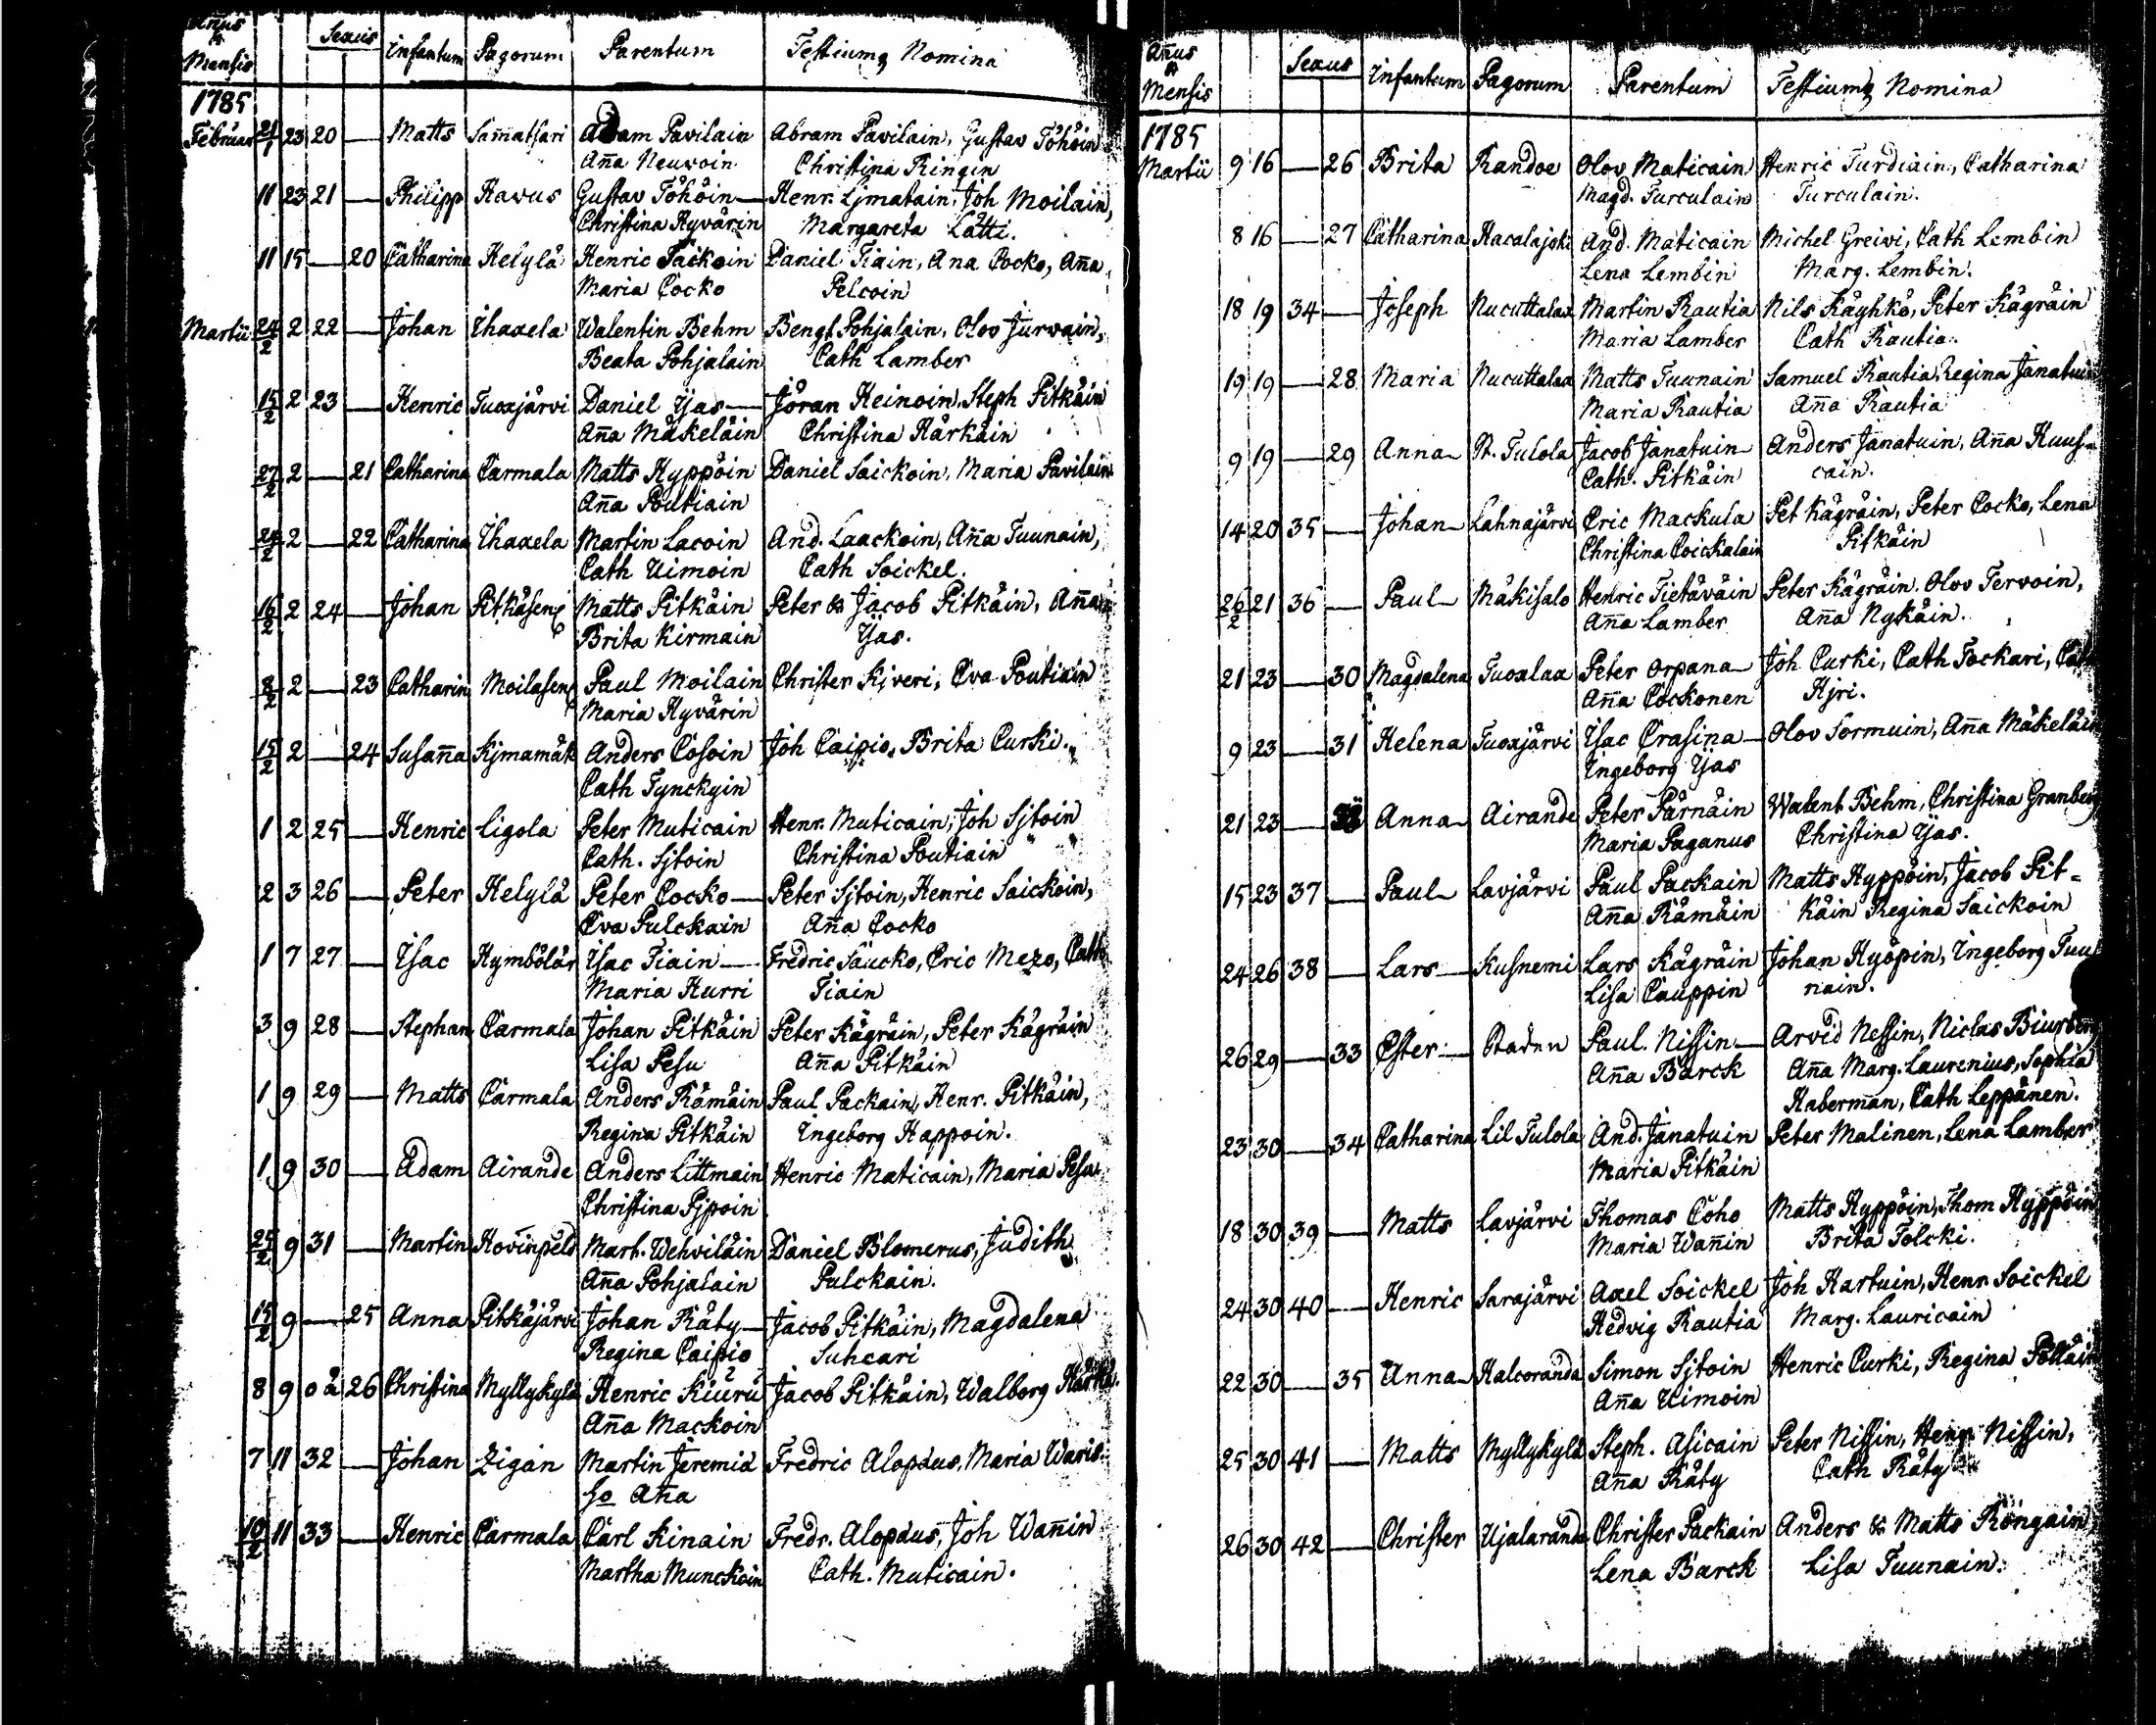 Añus & Mensis Sexus Infantum Pagorum Parentum Testiumq Nomina
1785
Februar 21/1 23 20 — Matts Sam̃atsari Adam Pavilain Abram Pavilain, Gustav Töhöin
Añа Neuvoin Christina Ringin
11 23 21 — Philipp Havus Gustav Töhöin — Henr. Ljmatain, Joh Moilain,
Christina Hyvärin Margareta Lätti.
11 15 — 20 Catharina Helylä Henric Täckoin Daniel Tiain, Ana Cocko, Aña
Maria Cocko Pelcoin
Martii 24/2 2 22 — Johan Ihaxela Walentin Behm Bengt Pohjalain, Olov Jurvain,
Beata Pohjalain Cath Lamber
15/2 2 23 — Henric Tuoxjärvi Daniel Ijas — Jöran Heinoin, Steph Pitkäin
Aña Mäkeläin Christina Härkäin
27/2 2 — 21 Catharina Carmala Matts Hyppöin Daniel Saickoin, Maria Pavilain
Aña Poutiain
24/2 2 — 22 Catharina Ihaxela Martin Lacoin And. Laackoin, Aña Tuunain,
Cath Uimoin Cath Soickel.
16/2 2 24 — Johan Pitkäsenç Matts Pitkäin Peter & Jacob Pitkäin, Aña
Brita Kirmain Ijas.
8/2 2 — 23 Catharin Moilasenç Paul Moilain Christer Kjveri, Eva Poutiain
Maria Hyvärin
15/2 2 — 24 Susaña Kjmamäk Anders Cosoin Joh Caipio, Brita Curki.
Cath Tynckyin
1 2 25 — Henric Ligola Peter Muticain Henr. Muticain, Joh Sjtoin
Cath. Sjtoin Christina Poutiain
2 3 26 — Peter Helylä Peter Cocko — Peter Sjtoin, Henric Saickoin,
Eva Pulckain Aña Cocko
1 7 27 — Isac Hymbölär Isac Tiain — Fredric Säucko, Eric Mezo, Cath
Maria Hurri Tiain
3 9 28 — Stephan Carmala Johan Pitkäin Peter Kägräin, Peter Kägräin
Lisa Pesu Aña Pitkäin
1 9 29 — Matts Carmala Anders Rämäin Paul Packain, Henr. Pitkäin,
Regina Pitkäin Ingeborg Happoin.
1 9 30 — Adam Airande Anders Littmain Henric Maticain, Maria Pesu
Christina Pjpoin
25/2 9 31 — Martin Hovinpeld Mart. Wehviläin Daniel Blomerus, Judith
Aña Pohjalain Pulckain.
15/2 9 — 25 Anna Pitkäjärvi Johan Räty — Jacob Pitkäin, Magdalena
Regina Caipio Suhcari
8 9 oä 26 Christina Myllykylä Henric Kiuru Jacob Pitkäin, Walborg Härkä.
Aña Mackoin
7 11 32 — Johan Zigan Martin Jeremiä Fredric Alopæus, Maria Waris.
so Aña
10/2 11 33 — Henric Carmala Carl Kinain Fredr. Alopæus, Joh Wañin
Martha Munckoin Cath. Muticain.
Añus & Mensis Sexus Infantum Pagorum Parentum Testiumq Nomina
1785
Martii 9 16 — 26 Brita Randoe Olov Maticain Henric Turdiain, Catharina
Magd. Turculain Turculain.
8 16 — 27 Catharina Hacalajoki And. Maticain Michel Greivi, Cath Lembin
Lena Lembin Marg. Lembin.
18 19 34 — Joseph Nucuttalax Martin Rautia Nils Käyhkö, Peter Kägräin
Maria Lamber Cath Rautia.
19 19 — 28 Maria Nucuttalax Matts Tuunain Samuel Rautia, Regina Janatuin
Maria Rautia Aña Rautia
9 19 — 29 Anna St. Tulola Jacob Janatuin Anders Janatuin, Aña Huus-
Cath. Pitkäin cain.
14 20 35 — Johan Lahnajärvi Eric Mackula Pet Kägräin, Peter Cocko, Lena
Christina Coickalain Pitkäin
26/2 21 36 — Paul Mäkisalo Henric Tietäväin Peter Kägräin. Olov Tervoin,
Aña Lamber Aña Nykäin.
21 23 — 30 Magdalena Tuoxlax Peter Orpana — Joh Curki, Cath Tockari, Cath
Aña Cockonen Hjri.
9 23 — 31 Helena Tuoxjärvi Isac Erasina — Olov Sormuin, Aña Mäkeläin
Ingeborg Ijas
21 23 — Anna Airande Peter Pärnäin Walent Behm, Christina Granberg
Maria Paganus Christina Ijas.
15 23 37 — Paul Lavjärvi Paul Packain Matts Hyppöin, Jacob Pit-
Aña Rämäin käin Regina Saickoin
24 26 38 — Lars Kusnemi Lars Kägräin Johan Hyöpin, Ingeborg Tuu
Lisa Cauppin nain.
26 29 — 33 Ester Staden Paul. Nissin — Arvid Nessin, Niclas Biurberg
Aña Barck Aña Marg. Laurenius, Sophia
Habermañ, Cath Leppänen.
23 30 — 34 Catharina Lil Tulola And. Janatuin Peter Malinen, Lena Lamber
Maria Pitkäin
18 30 39 — Matts Lavjärvi Thomas Coho Matts Hyppöin, Thom Hyppöin
Maria Wañin Brita Tolcki.
24 30 40 — Henric Sarajärvi Axel Soickel Joh Hartuin, Henr Soickel
Hedvig Rautia Marg. Lauricain
22 30 — 35 Anna Halcoranda Simon Sjtoin Henric Curki, Regina Pölläin
Aña Uimoin
25 30 41 — Matts Myllykylä Steph. Asicain Peter Nissin, Henr Nissin,
Aña Räty Cath Räty
26 30 42 — Christer Ujalaranda Christer Packain Anders & Matts Röngain
Lena Barck Lisa Tuunain.